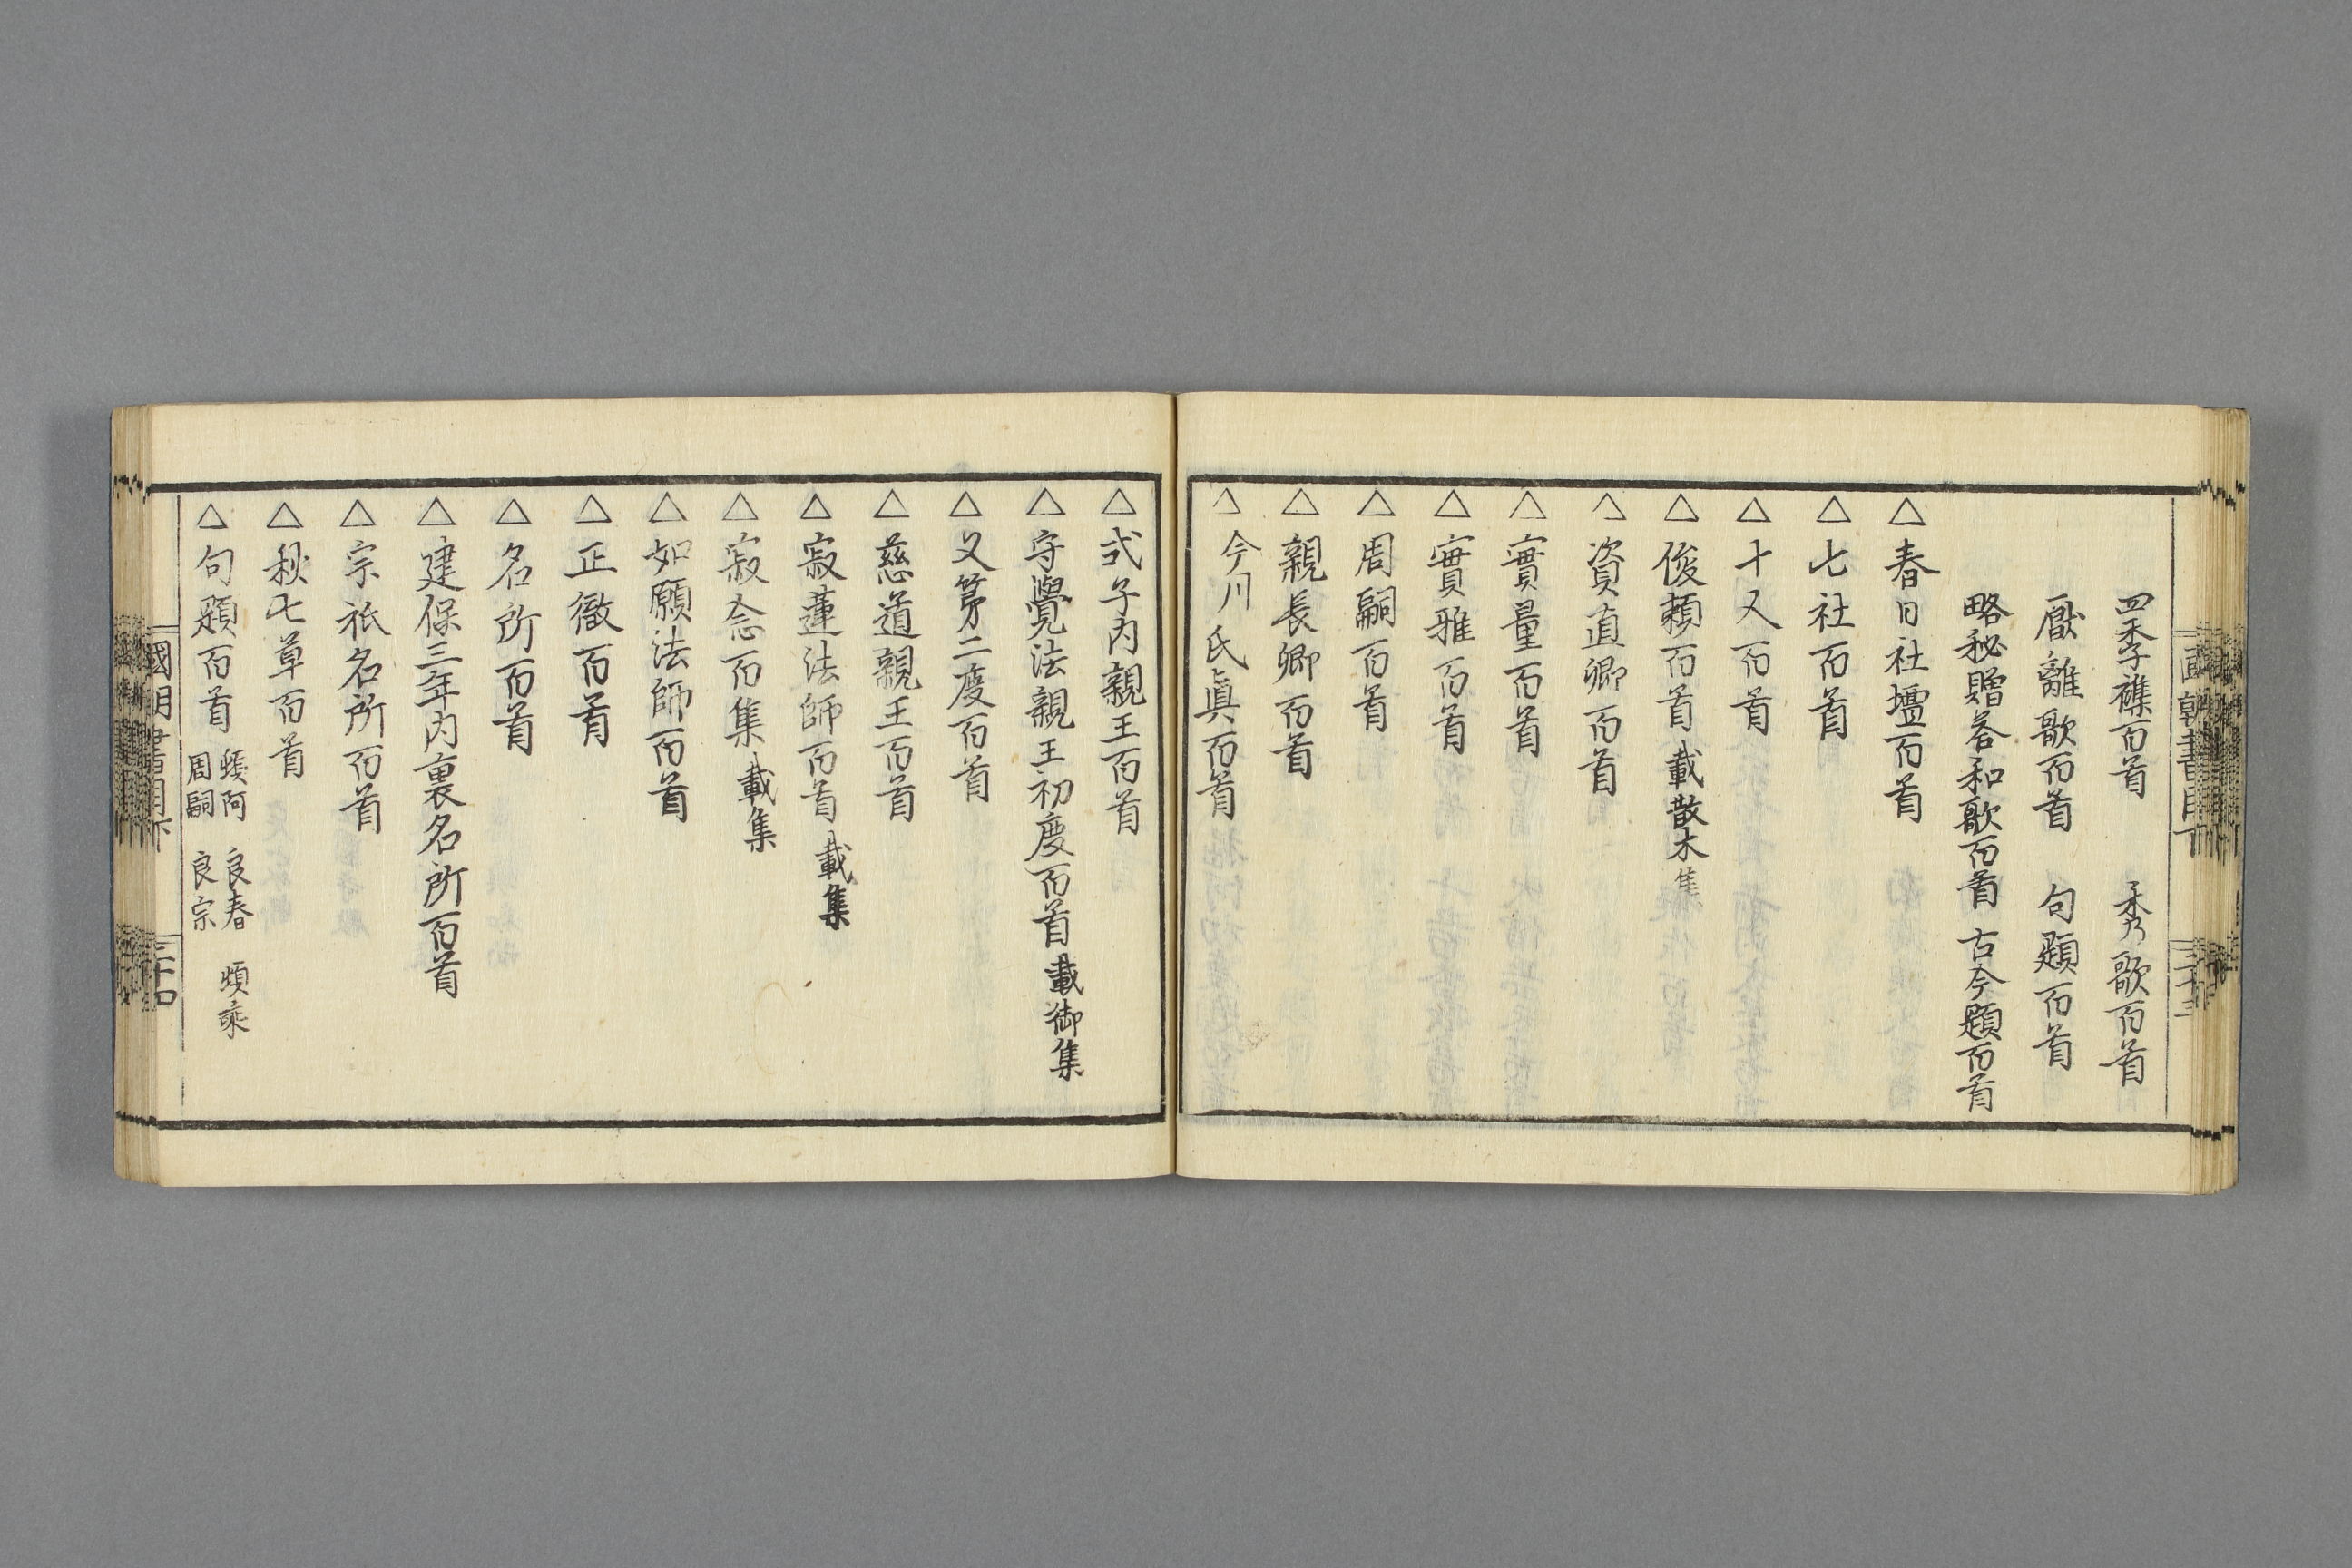 四季襍百首　秀歌百首
厭離歌百首　句題百首
略秘贈答和歌百首　古今題百首
△春日社壇百首
△七社百首
△十又百首
△俊頼百首 載散木集
△資直卿百首
△實量百首
△實雅百首
△周嗣百首
△親長卿百首
△今川氏眞百首
△式子内親王百首
△守覺法親王初度百首 載御集
△又第二度百首
△慈道親王百首
△寂蓮法師百首 載集
△寂念百集 載集
△如願法師百首
△正徹百首
△名所百首
△建保三年内裏名所百首
△宗祇名所百首
△秋七草百首
△句題百首 阿 良春 頓乘
周嗣 良宗